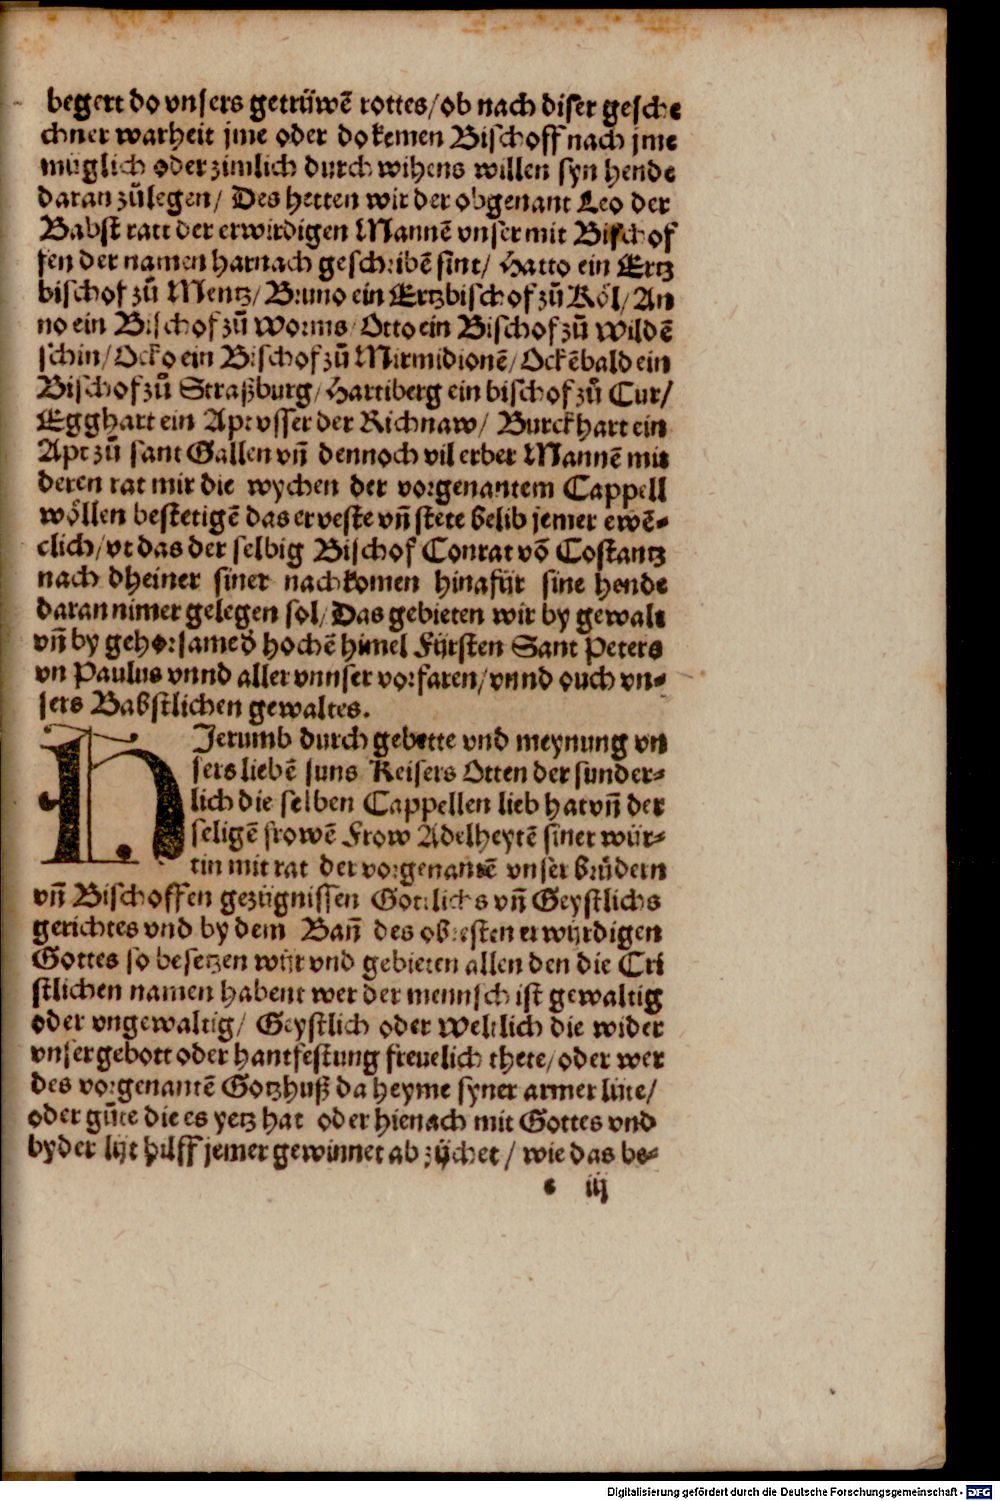 begert do vnsers getrüwē rottes/ ob nach diser gesche
chner warheit jme oder do kemen Bischoff nach jme
müglich oder zimlich durch wihens willen syn hende
daran zů legen/ Des hetten wir der obgenant Leo der
Babst ratt der erwirdigen Mannē vnser mit Bischof
fen der namen harnach geschribē sint/ Hatto ein Ertz
bischof zů Mentz/ Bruno ein Ertzbischof zů Köl/ An
no ein Bischof zů Worms/ Otto ein Bischof zů Wildē
schin/ Ocko ein Bischof zů Mirmidionē/ Ockēbald ein
Bischof zů Straßburg/ Hartiberg ein bischof zů Cur/
Egghart ein Apt vsser der Richnaw/ Burckhart ein
Apt zů sant Gallen vñ dennoch vil erber Mannē mit
deren rat mir die wychen der vorgenantem Cappell
wöllen bestetigē das er veste vñ stete belib jemer ewē-
clich/ vt das der selbig Bischof Conrat vō Costantz
nach dheiner siner nachkomen hinafür sine hende
daran nimer gelegen sol/ Das gebieten wir by gewalt
vñ by gehorsamed hochē himel Fürsten Sant Peters
vn Paulus vnnd aller vnnser vorfaren/ vnnd ouch vn-
sers Babstlichen gewaltes.
HJerumb durch gebette vnd meynung vn
sers liebē suns Keisers Otten der sunder-
lich die selben Cappellen lieb hat vñ der
seligē frowē Frow Adelheytē siner wür-
tin mit rat der vorgenantē vnser brüdern
vñ Bischoffen gezügnissen Götlichs vñ Geystlichs
gerichtes vnd by dem Bañ des obresten erwürdigen
Gottes so besetzen wür vnd gebieten allen den die Cri
stlichen namen habent wer der mennsch ist gewaltig
oder vngewaltig/ Geystlich oder Weltlich die wider
vnser gebott oder hantfestung freuelich thete/ oder wer
des vorgenantē Gotzhuß da heyme syner armer lüte/
oder gůte die es yetz hat oder hienach mit Gottes vnd
byder lyt hilff jemer gewinnet ab zücket/ wie das be-
iij
Digitalisierung gefördert durch die Deutsche Forschungsgemeinschaft - DFG